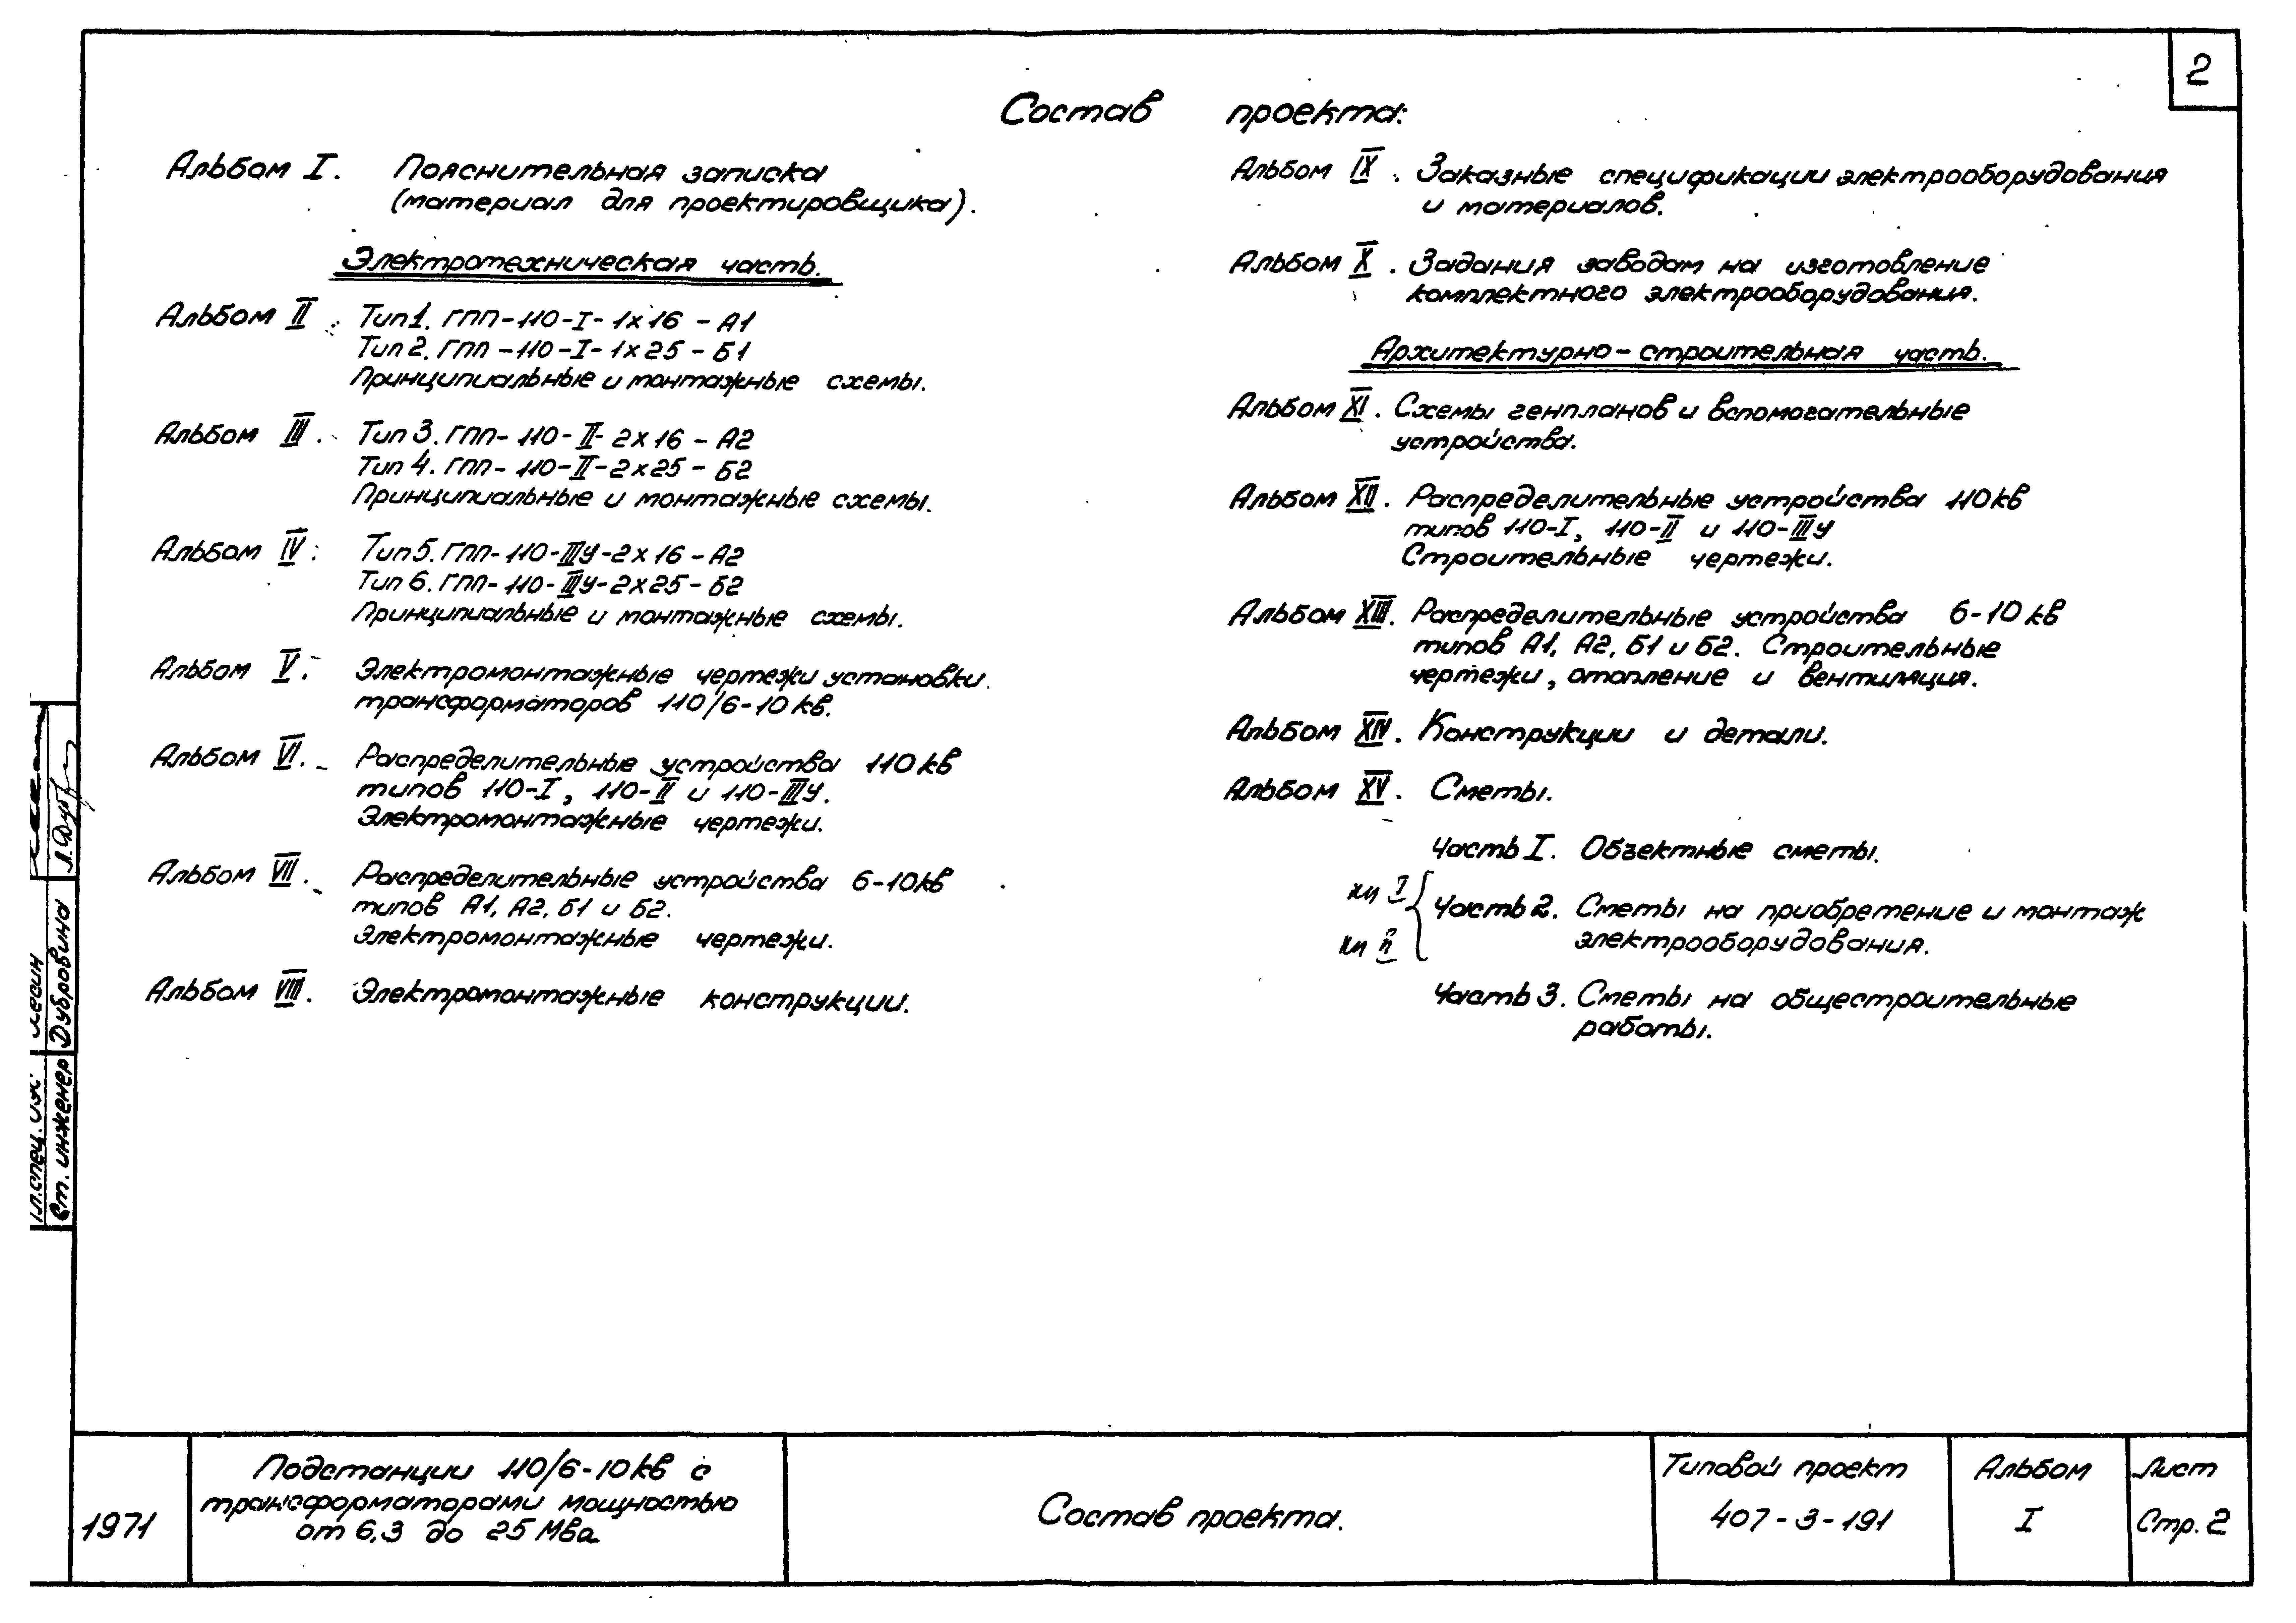 2
Состав проекта:
Альбом I. Пояснительная записка
(материал для проектировщика).
Электротехническая часть.
Альбом II. Тип 1. ГПП-110-I-1х16-А1
Тип 2. ГПП-110-I-1х25-Б1
Принципиальные и монтажные схемы.
Альбом III. Тип 3. ГПП-110-II-2х16-А2
Тип 4. ГПП-110-II-2х25-Б2
Принципиальные и монтажные схемы.
Альбом IV. Тип 5. ГПП-110-IIIУ-2х16-А2
Тип 6. ГПП-110-IIIУ-2х25-Б2
Принципиальные и монтажные схемы.
Альбом V. Электромонтажные чертежи установки
трансформаторов 110/6-10кв.
Альбом VI. Распределительные устройства 110кв
типов 110-I, 110-II и 110-IIIУ.
Электромонтажные чертежи.
Альбом VII. Распределительные устройства 6-10кв
типов А1, А2, Б1 и Б2.
Электромонтажные чертежи.
Альбом VIII. Электромонтажные конструкции.
Альбом IX. Заказные спецификации электрооборудования
и материалов.
Альбом X. Задания заводам на изготовление
комплектного электрооборудования.
Архитектурно-строительная часть.
Альбом XI. Схемы генпланов и вспомогательные
устройства.
Альбом XII. Распределительные устройства 110кв
типов 110-I, 110-II и 110-IIIУ
Строительные чертежи.
Альбом XIII. Распределительные устройства 6-10кв
типов А1, А2, Б1 и Б2. Строительные
чертежи, отопление и вентиляция.
Альбом XIV. Конструкции и детали.
Альбом XV. Сметы.
Часть I. Объектные сметы.
кн I
Часть 2. Сметы на приобретение и монтаж
электрооборудования.
кн II
Часть 3. Сметы на общестроительные
работы.
Ст. инженер Дубровина
1971
Подстанции 110/6-10кв с
трансформаторами мощностью
от 6,3 до 25 Мва
Состав проекта.
Типовой проект
407-3-191
Альбом
I
Лист
Стр. 2